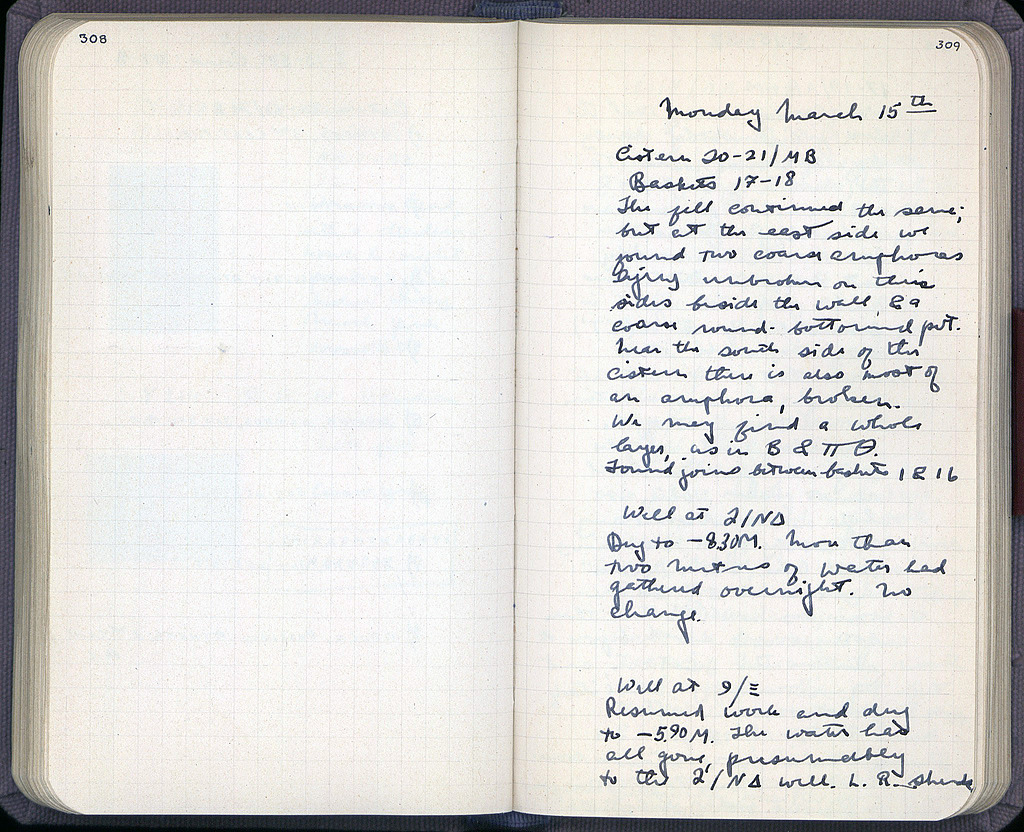 308
309
Monday March 15th
Cistern 20-21/ΜΒ
Baskets 17-18
The fill continued the same;
but at the east side we
found two coarse amphoras
lying unbroken on their
sides beside the wall, & a
coarse round-bottomed pot.
Near the south side of the
cistern there is also most of
an amphora, broken.
We may find a whole
layer, as in B & ΠΘ.
Found joins between baskets 1 & 16
Well at 2/ΝΔ
Dug to -8.30M. More than
two metres of water had
gathered overnight. No
change.
Well at 9/Ξ
Resumed work and dug
to -5.90M. The water has
all gone, presumably
to the 2/ΝΔ well. L. R. sherds